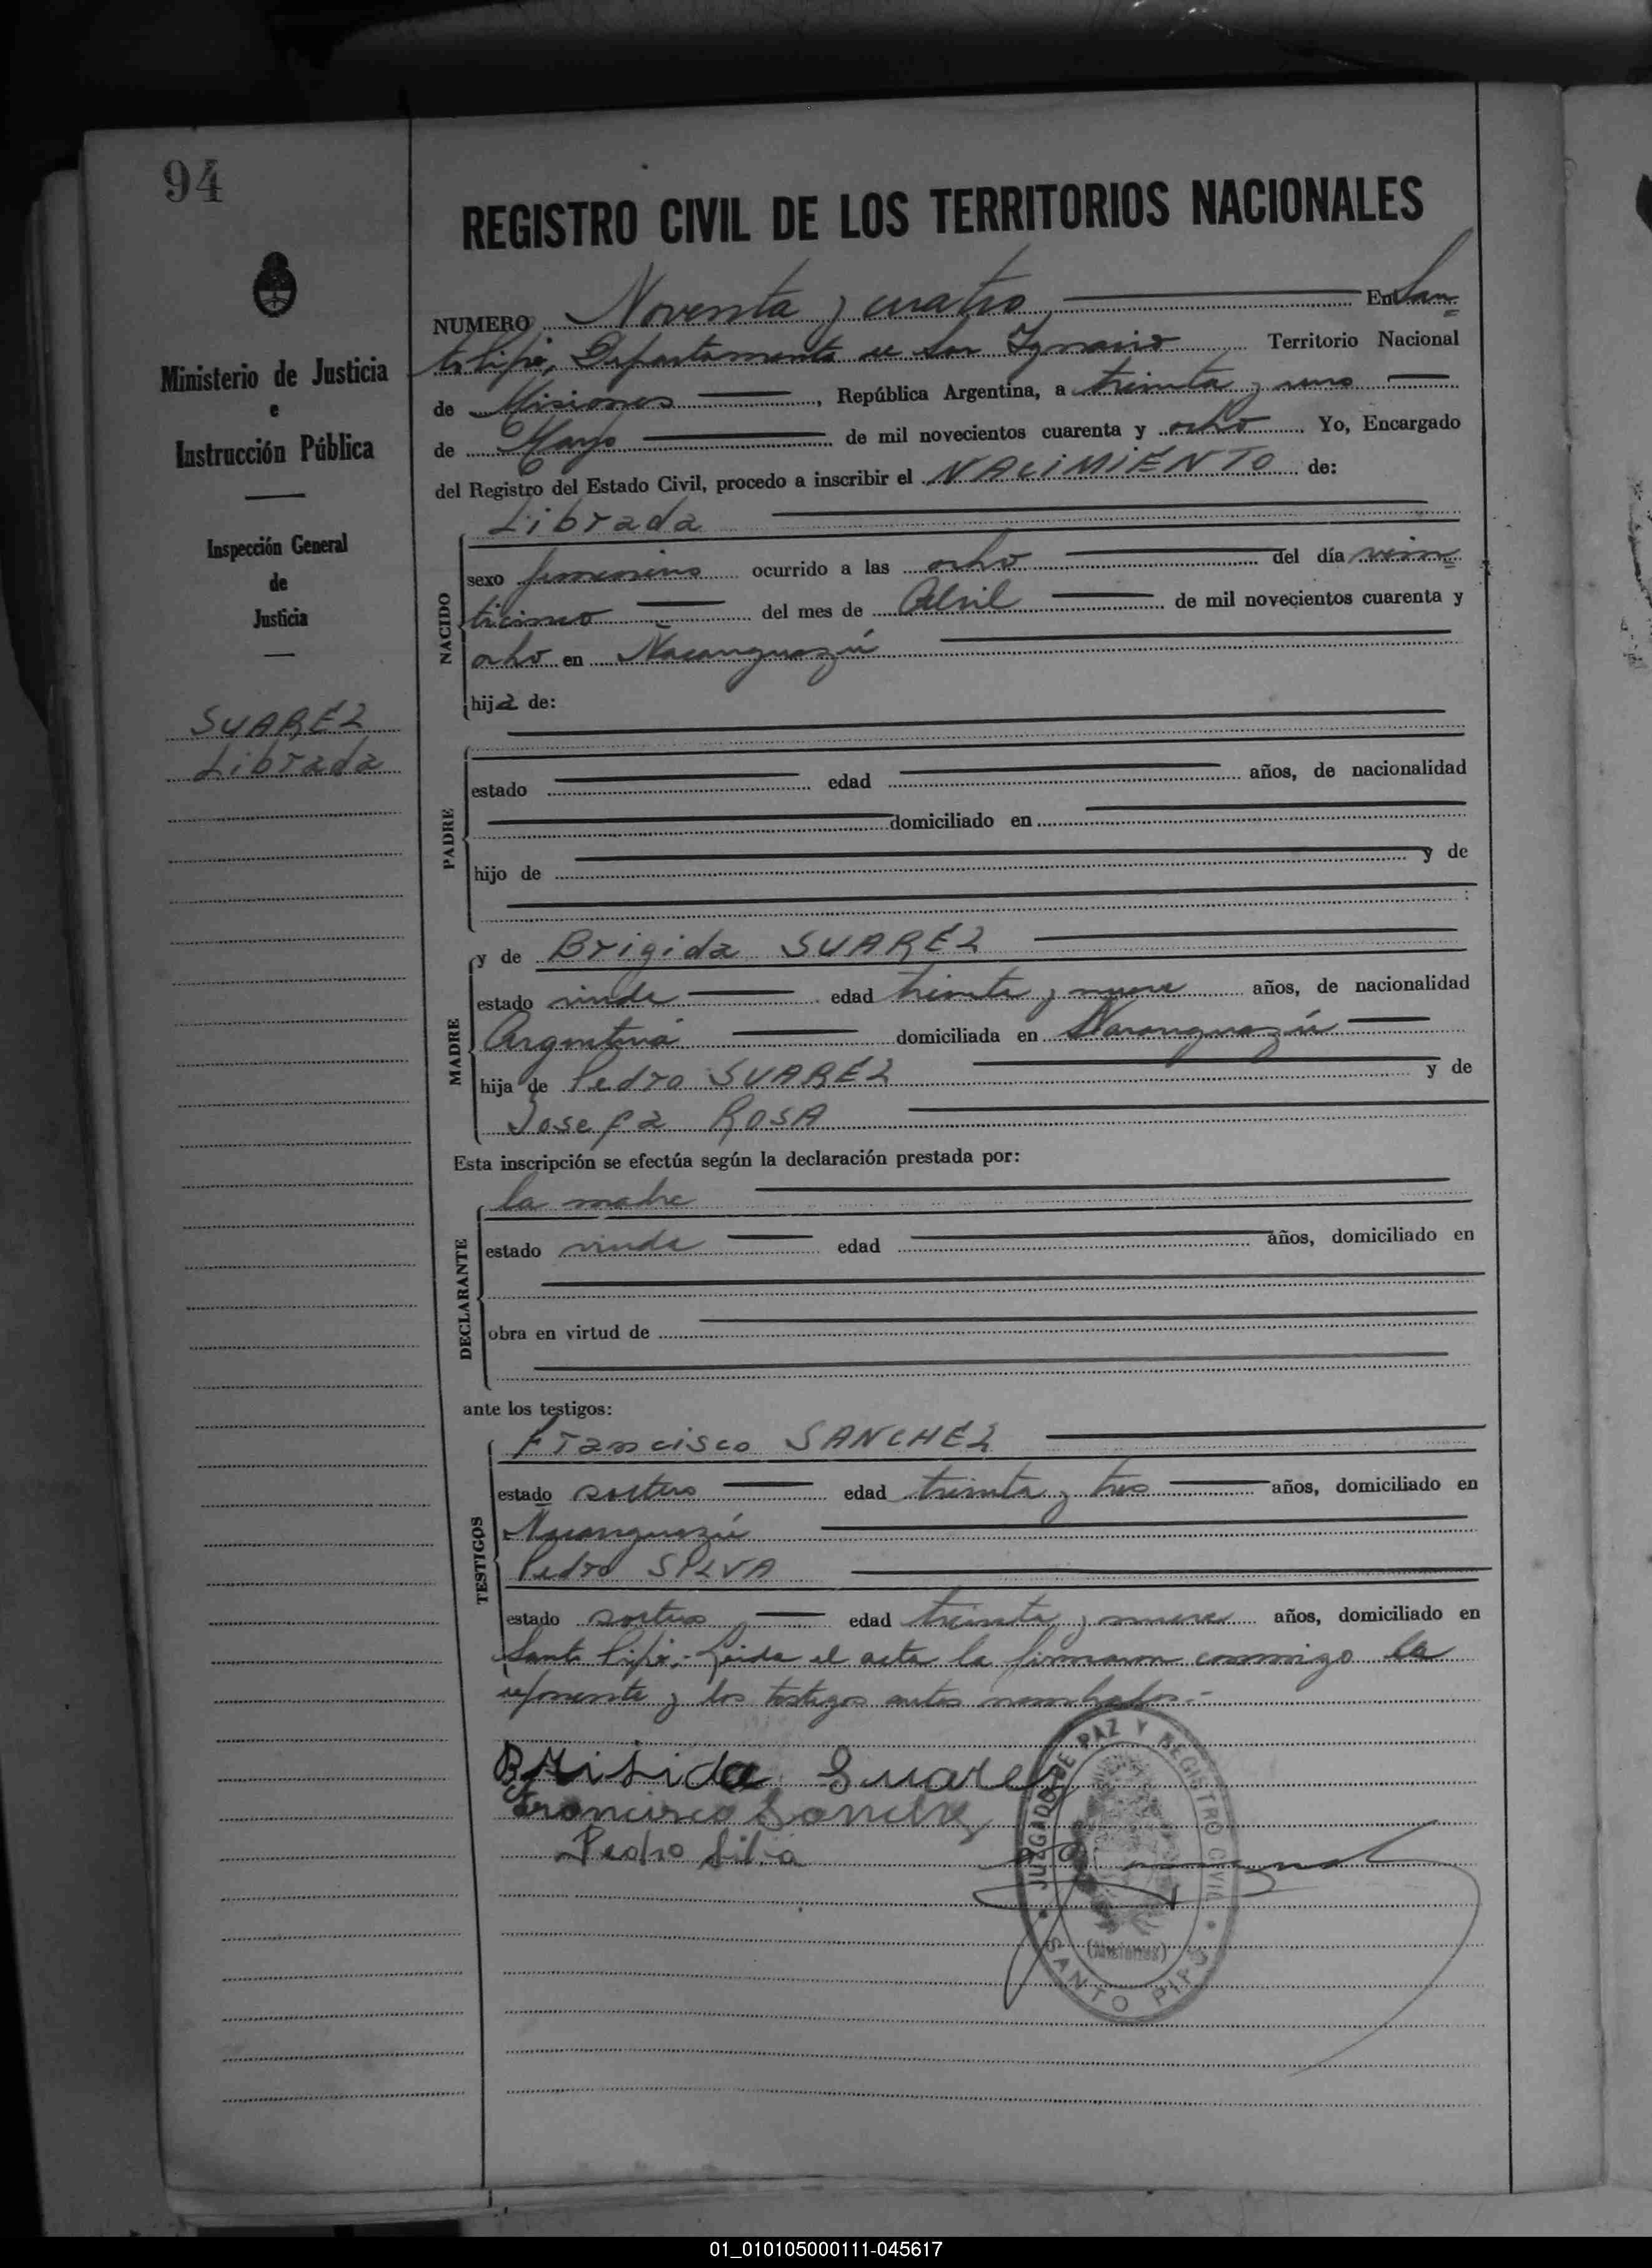 94
REGISTRO CIVIL DE LOS TERRITORIOS NACIONALES
NUMERO Noventa y cuatro En San
to Pipó, Departamento de San Ignacio Territorio Nacional
de Misiones, República Argentina, a treinta y uno
de Mayo de mil novecientos cuarenta y ocho Yo, Encargado
del Registro del Estado Civil, procedo a inscribir el NACIMIENTO de:
Librada
NACIDO
sexo femenino ocurrido a las ocho del día vein
ticinco del mes de Abril de mil novecientos cuarenta y
ocho en Ñacanguazú
hija de:
PADRE
estado edad años, de nacionalidad
domiciliado en
hijo de y de
:
MADRE
y de Brigida SUAREZ
estado viuda edad treinta y nueve años, de nacionalidad
Argentina domiciliada en Ñacanguazú
hija de Pedro SUAREZ y de
Josefa ROSA
Esta inscripción se efectúa según la declaración prestada por:
DECLARANTE
la madre
estado viuda edad años, domiciliado en
obra en virtud de
ante los testigos:
TESTIGOS
Francisco SANCHEZ
estado soltero edad treinta y tres años, domiciliado en
Ñacanguazú
Pedro SILVA
estado soltero edad treinta y nueve años, domiciliado en
Santo Pipó.- Leida el acta la firmaron conmigo la
deponente y los testigos antes nombrados.-
Brisida Suarez
Francisco Sanchez
Pedro Silva
JUZGADO DE PAZ Y REGISTRO CIVIL
(Misiones)
SANTO PIPÓ
Ministerio de Justicia
e
Instrucción Pública
Inspección General
de
Justicia
SUAREZ
Librada
01_010105000111-045617